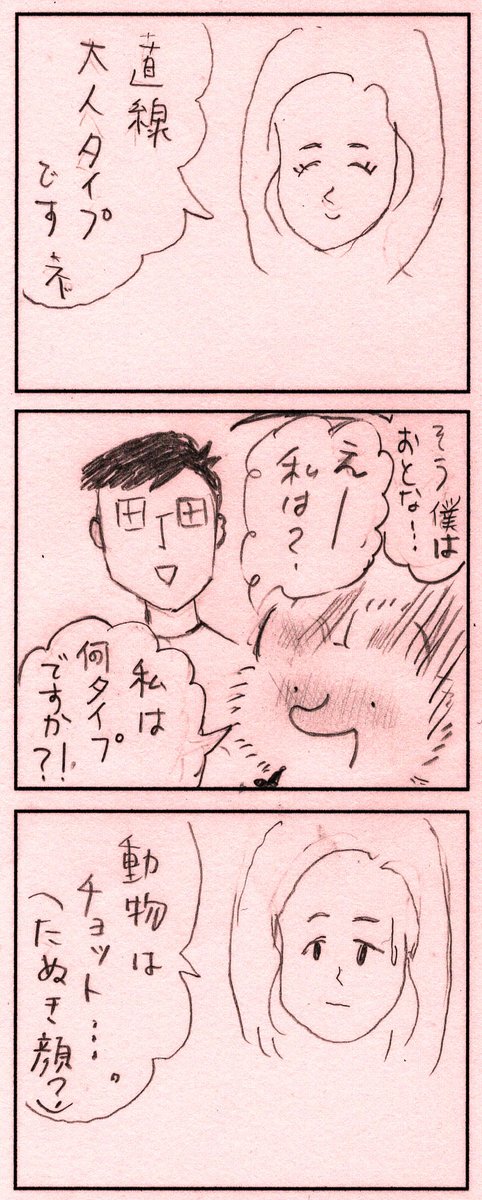 直線
大人タイプ
ですネ
そう僕は
おとな…
えー
私は?
私は
何タイプ
ですか?!
動物は
チョット…。
(たぬき顔?)